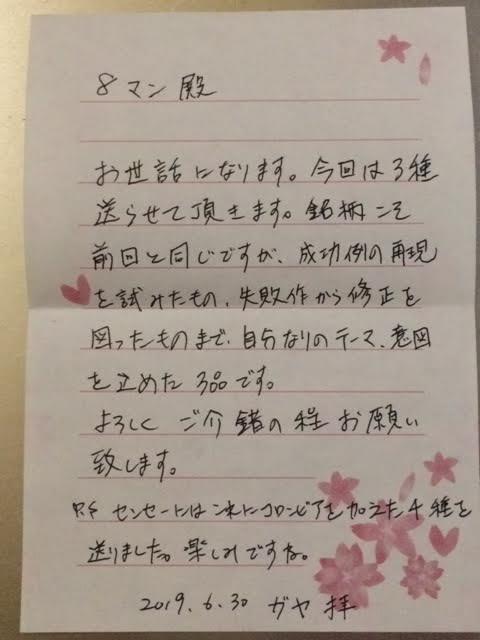 8マン殿
お世話になります。今回は3種
送らせて頂きます。銘柄こそ
前回と同じですが、成功例の再現
を試みたもの、失敗作から修正を
図ったものまで、自分なりのテーマ、意図
を込めた3品です。
よろしくご介錯の程お願い
致します。
P.S センセートにはこれにコロンビアを加えた4種を
送りました。楽しみですな。
2019.6.30 ガヤ 拝